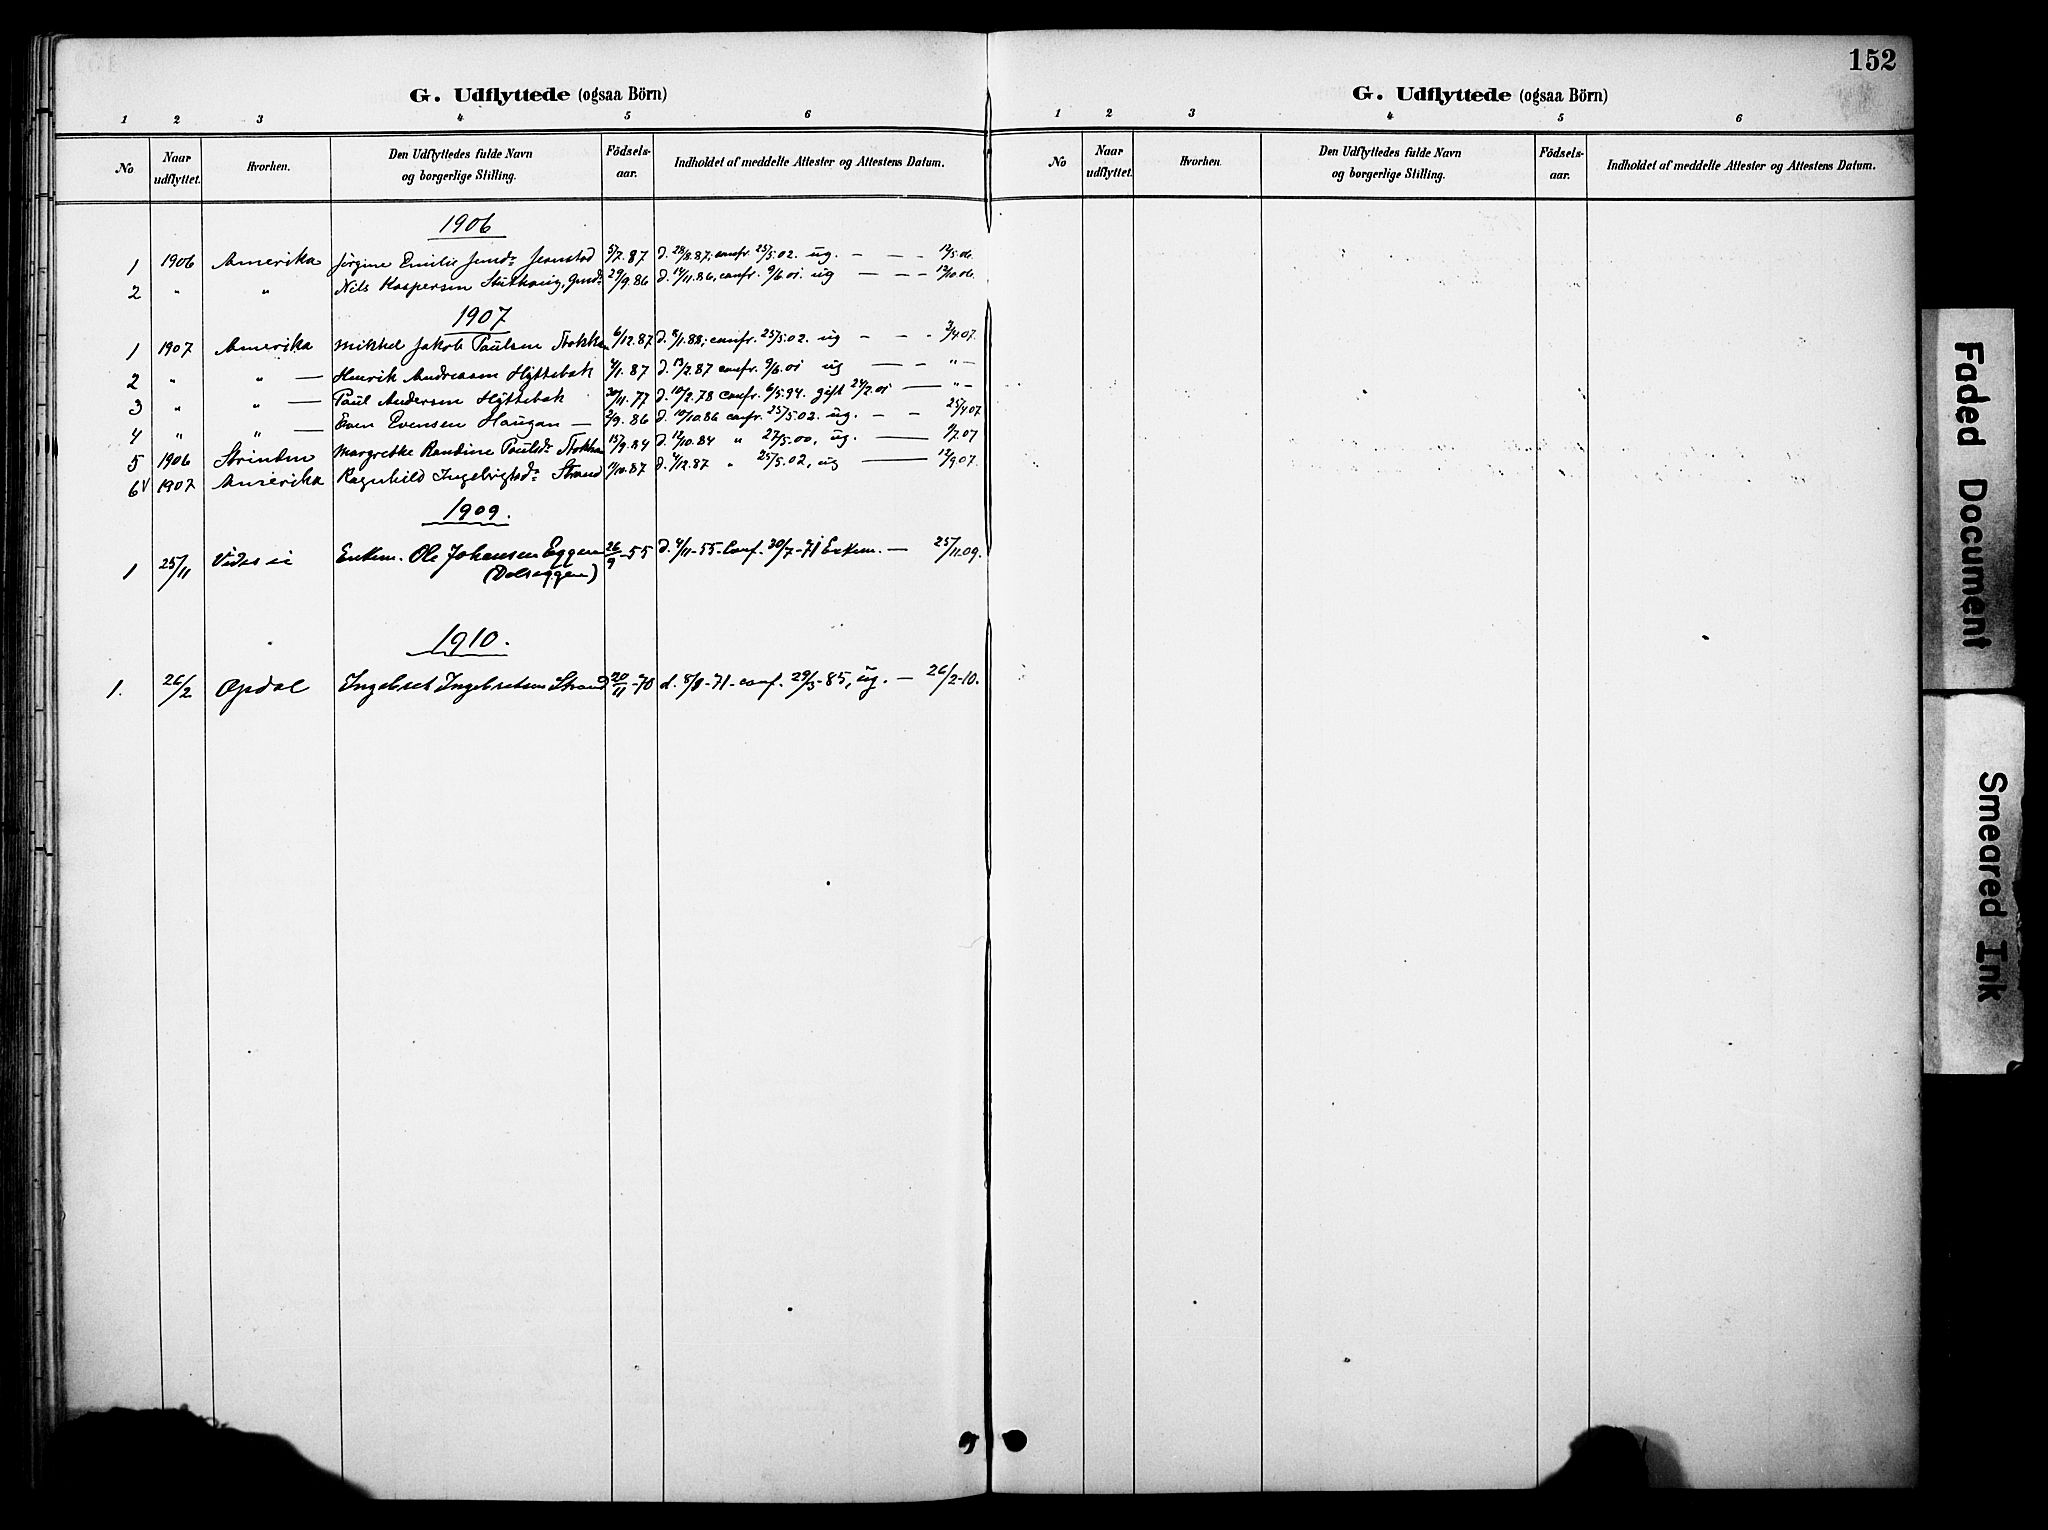 152
G. Udflyttede (ogsaa Börn)
1 2 3 4 5 6
No Naar udflyttet. Hvorhen. Den Udflyttedes fulde Navn og borgerlige Stilling. Födsels-aar. Indholdet af meddelte Attester og Attestens Datum.
1906
1 1906 Amerika Jörgine Emilie 5/7.87 d. 28/8.87; confr. 25/5.02. ug. - - - 12/5.06.
2 " " Nils Kaspersen 29/9.86 d. 14/11.86, confr. 9/6.01. ug — — — 12/10.06.
1907
1 1907 Amerika Mikkel Jakob Paulsen Stokkan 6/12.87 d. 8/1.88; confr. 25/5.02. ug - - - 3/4.07.
2 " " — Henrik Andreasen Hyttebak 4/1.87 d. 13/2.87 confr. 9/6.01 ug — — " —
3 " " — Paul Andersen Hyttebak 30/11.77 d. 10/2.78 confr. 6/5.94. gift 24/2.01 — " —
4 " " — Even Evensen Haugan — 2/9.86 d. 10/10.86 confr. 25/5.02. ug. - - 25/4.07
5 1906 Strinden Margrethe Randine Paulsdr Stokkan 15/9.84 d. 12/10.84 " 27/5.00, ug. — 9/7.07
6 v 1907 Amerika Ragnhild Ingebrigtsdr Strand 9/10.87 d. 4/12.87 " 25/5.02, ug — 12/9.07.
1909.
1 25/11 Vides ei Enkem. Ole Johansen Eggen 26/9-55 d. 4/11-55. Conf. 30/7-71 Enkem. — 25/11.09.
(Dalseggen)
1910.
1. 26/2 Opdal Ingebret Ingebretsen Strand 20/11-70 d. 8/1-71-conf. 29/3-85, ug. — 26/2-10.
G. Udflyttede (ogsaa Börn)
1 2 3 4 5 6
No Naar udflyttet. Hvorhen. Den Udflyttedes fulde Navn og borgerlige Stilling. Födsels-aar. Indholdet af meddelte Attester og Attestens Datum.
Faded Document
Smeared Ink